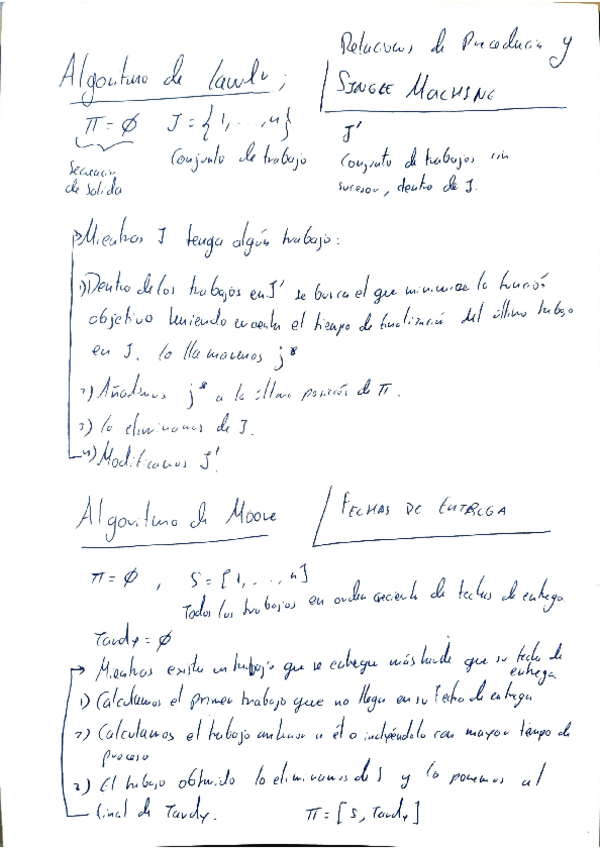 Relaciones de Precedencia y
Algoritmo de Lawler;
SINGLE MACHINE
π = ∅ J = {1, ..., n}
J'
Secuencia
de salida
Conjunto de trabajo
Conjunto de trabajos sin
sucesor, dentro de J.
Mientras J tenga algún trabajo:
1) Dentro de los trabajos en J' se busca el que minimice la función
objetivo teniendo en cuenta el tiempo de finalización del último trabajo
en J. Lo llamaremos j*
2) Añadimos j* a la última posición de π.
3) Lo eliminamos de J.
4) Modificamos J'.
Algoritmo de Moore
FECHAS DE ENTREGA
π = ∅ , S = [1, ..., n]
Todos los trabajos en orden creciente de fechas de entrega
Tardy = ∅
Mientras exista un trabajo que se entregue más tarde que su fecha de
entrega
1) Calculamos el primer trabajo que no llega en su fecha de entrega
2) Calculamos el trabajo anterior a él o incluyéndolo con mayor tiempo de
proceso
3) El trabajo obtenido lo eliminamos de S y lo ponemos al
final de Tardy. π = [S, Tardy]